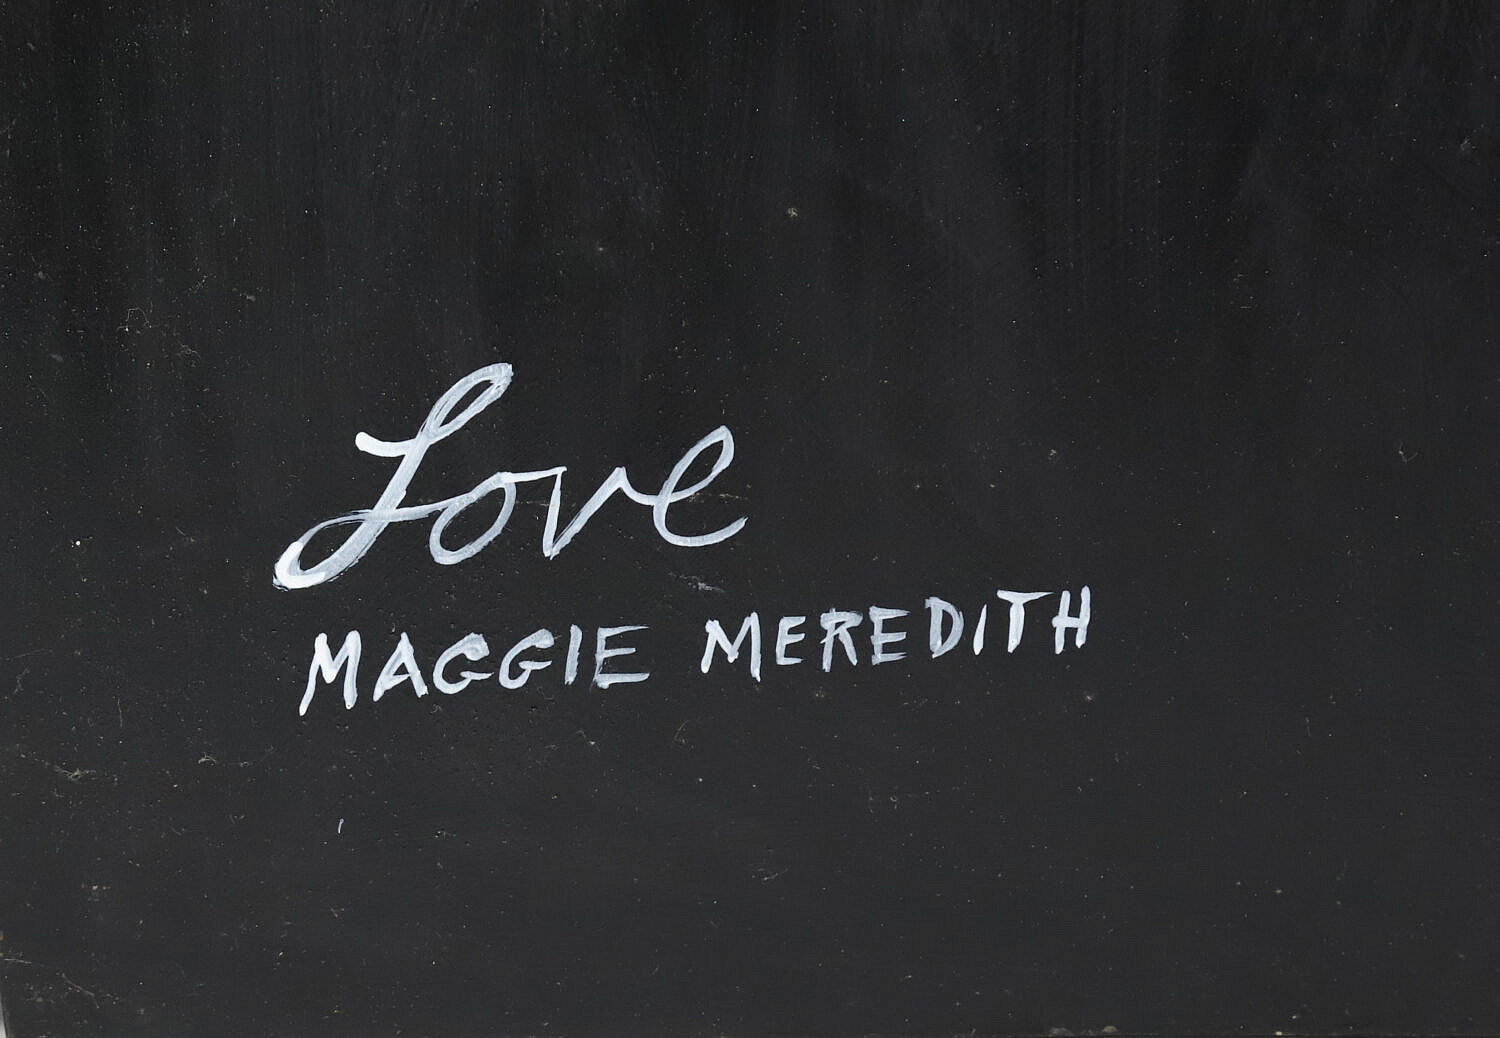 Love
MAGGIE MEREDITH